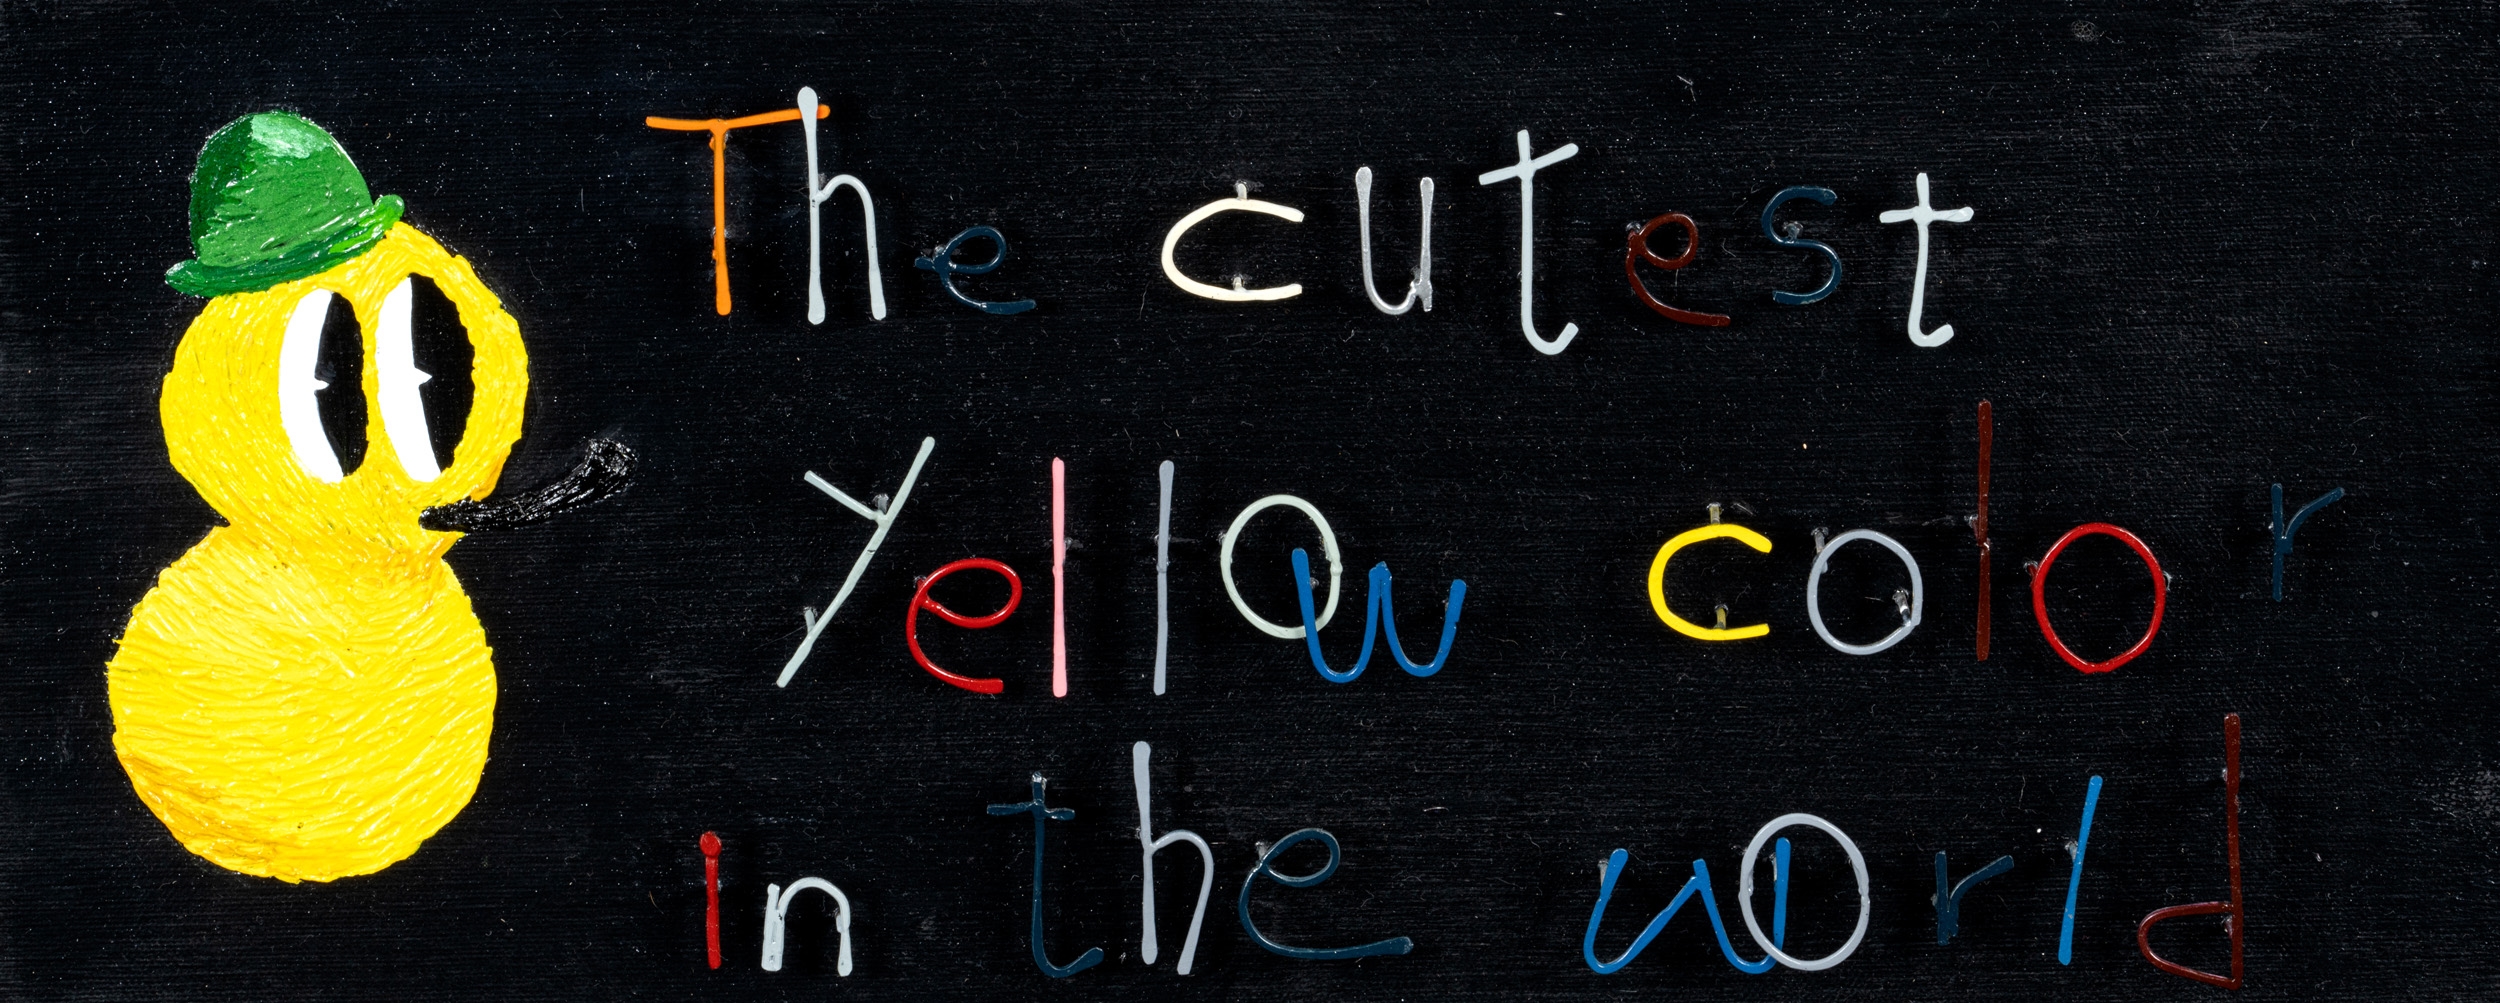 The cutest
yellow color
in the world